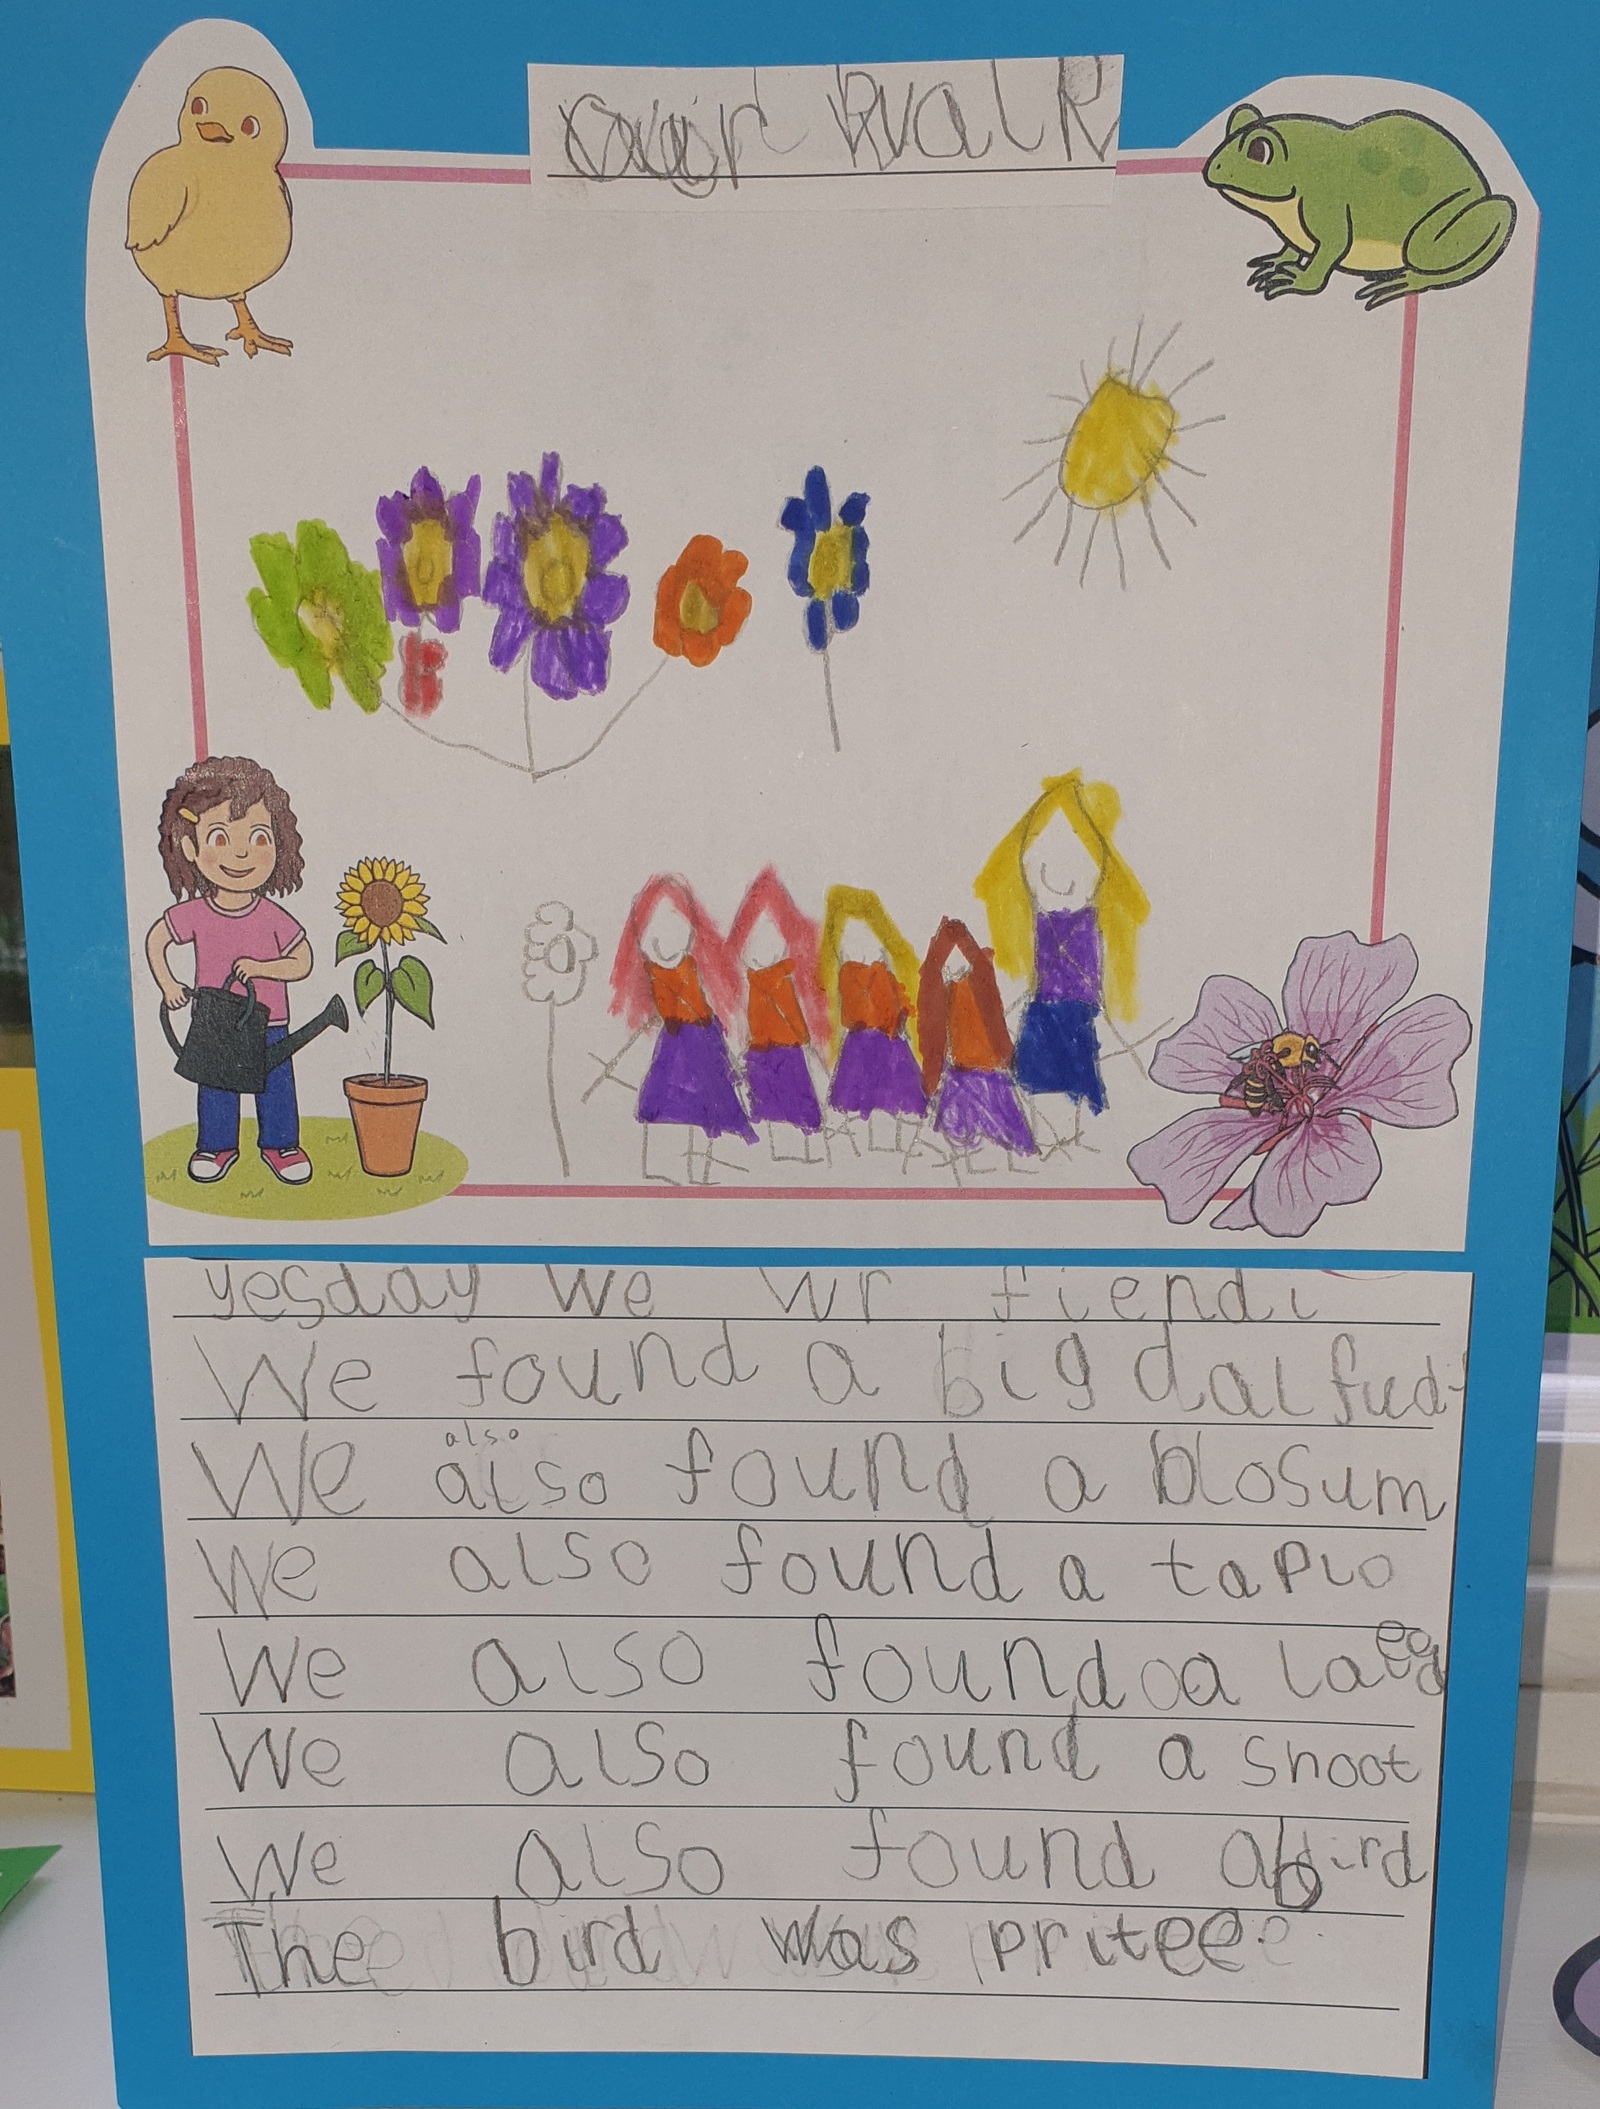 our walk
yesday we wr fiendi
We found a big dalfud
We also also found a blosum
We also found a taplo
We also found a laed
We also found a shoot
We also found a bird
The bird was pritee.